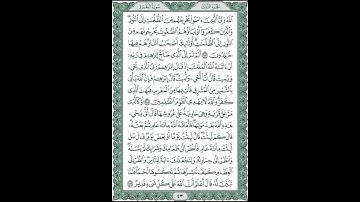 سُورَةُ البَقَرَةِ
الجُزْءُ الثَّالِثُ
ٱللَّهُ وَلِيُّ ٱلَّذِينَ ءَامَنُوا۟ يُخْرِجُهُم مِّنَ ٱلظُّلُمَٰتِ إِلَى ٱلنُّورِ
وَٱلَّذِينَ كَفَرُوٓا۟ أَوْلِيَآؤُهُمُ ٱلطَّٰغُوتُ يُخْرِجُونَهُم مِّنَ
ٱلنُّورِ إِلَى ٱلظُّلُمَٰتِ أُو۟لَٰٓئِكَ أَصْحَٰبُ ٱلنَّارِ هُمْ فِيهَا
خَٰلِدُونَ ٢٥٧ أَلَمْ تَرَ إِلَى ٱلَّذِى حَآجَّ إِبْرَٰهِۦمَ فِى رَبِّهِۦٓ
أَنْ ءَاتَىٰهُ ٱللَّهُ ٱلْمُلْكَ إِذْ قَالَ إِبْرَٰهِۦمُ رَبِّىَ ٱلَّذِى يُحْىِۦ
وَيُمِيتُ قَالَ أَنَا۠ أُحْىِۦ وَأُمِيتُ قَالَ إِبْرَٰهِۦمُ فَإِنَّ ٱللَّهَ يَأْتِى
بِٱلشَّمْسِ مِنَ ٱلْمَشْرِقِ فَأْتِ بِهَا مِنَ ٱلْمَغْرِبِ فَبُهِتَ ٱلَّذِى
كَفَرَ وَٱللَّهُ لَا يَهْدِى ٱلْقَوْمَ ٱلظَّٰلِمِينَ ٢٥٨ أَوْ كَٱلَّذِى
مَرَّ عَلَىٰ قَرْيَةٍ وَهِىَ خَاوِيَةٌ عَلَىٰ عُرُوشِهَا قَالَ أَنَّىٰ يُحْىِۦ
هَٰذِهِ ٱللَّهُ بَعْدَ مَوْتِهَا فَأَمَاتَهُ ٱللَّهُ مِا۟ئَةَ عَامٍ ثُمَّ بَعَثَهُۥ
قَالَ كَمْ لَبِثْتَ قَالَ لَبِثْتُ يَوْمًا أَوْ بَعْضَ يَوْمٍ قَالَ بَل
لَّبِثْتَ مِا۟ئَةَ عَامٍ فَٱنظُرْ إِلَىٰ طَعَامِكَ وَشَرَابِكَ لَمْ يَتَسَنَّهْ
وَٱنظُرْ إِلَىٰ حِمَارِكَ وَلِنَجْعَلَكَ ءَايَةً لِّلنَّاسِ وَٱنظُرْ إِلَى
ٱلْعِظَامِ كَيْفَ نُنشِزُهَا ثُمَّ نَكْسُوهَا لَحْمًا فَلَمَّا
تَبَيَّنَ لَهُۥ قَالَ أَعْلَمُ أَنَّ ٱللَّهَ عَلَىٰ كُلِّ شَىْءٍ قَدِيرٌ ٢٥٩
٤٣